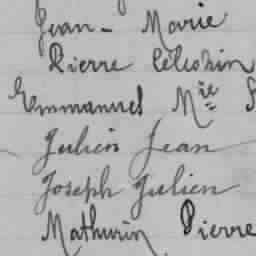 Jean - Marie
Pierre Célestin
Emmanuel Mie
Julien Jean
Joseph Julien
Mathurin Pierre